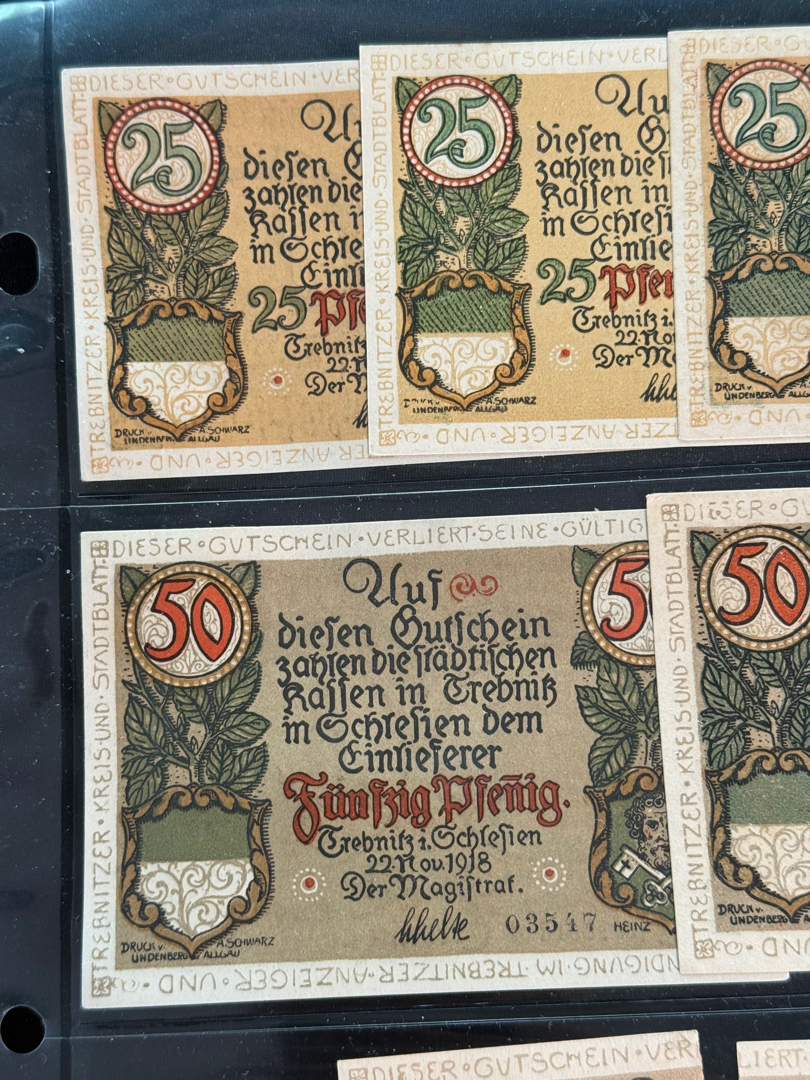 DIESER · GUTSCHEIN · VER
TREBNITZER · KREIS · UND · STADTBLATT ·
25
diesen G
zahlen die
Kassen i
in Schle
Einli
25 Pfe
Trebnitz
Der M
DRUCK v. A. SCHWARZ
LINDENBERG ALLGÄU
TREBNITZER · ANZEIGER · UND ·
DIESER · GUTSCHEIN · VERL
TREBNITZER · KREIS · UND · STADTBLATT ·
25
Auf
diesen G
zahlen die s
Kassen in
in Schlesi
Einlie
25 Pfen
Trebnitz i.
22 Nov
Der Ma
A. SCHWARZ
LINDENBERG ALLGÄU
TREBNITZER · ANZEIGER · UND ·
DIESER · G
TREBNITZER · KREIS · UND · STADTBLATT ·
25
DIESER · GUTSCHEIN · VERLIERT · SEINE · GÜLTIG
TREBNITZER · KREIS · UND · STADTBLATT ·
50
Auf
diesen Gutschein
zahlen die städtischen
Kassen in Trebnitz
in Schlesien dem
Einlieferer
Fünfzig Pfen̄ig.
Trebnitz i. Schlesien
22 Nov. 1918
Der Magistrat.
03547
HEINZ
DRUCK v. A. SCHWARZ
LINDENBERG ALLGÄU
NDIGUNG · IM · TREBNITZER · ANZEIGER · UND ·
DIESER · G
TREBNITZER · KREIS · UND · STADTBLATT ·
50
DRUCK v.
LINDENBERG
DIESER · GUTSCHEIN · VER
LIERT · SEINE